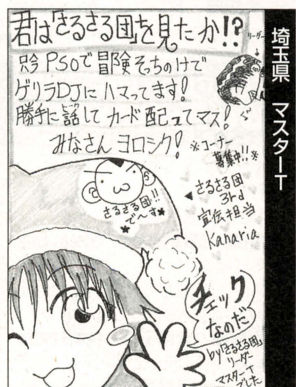 君は「さるさる団」を見たか!?
リーダー
只今PSOで冒険そっちのけで
ゲリラDJにハマってます!
勝手に話してカード配ってマス!
みなさんヨロシク!
※コーナー
募集中!!※
さるさる団!!
でへす
さるさる団
3rd
宣伝担当
Kanaria
チェック
なのだ
by「さるさる団」
リーダー
マスターT
でした
埼玉県 マスターT